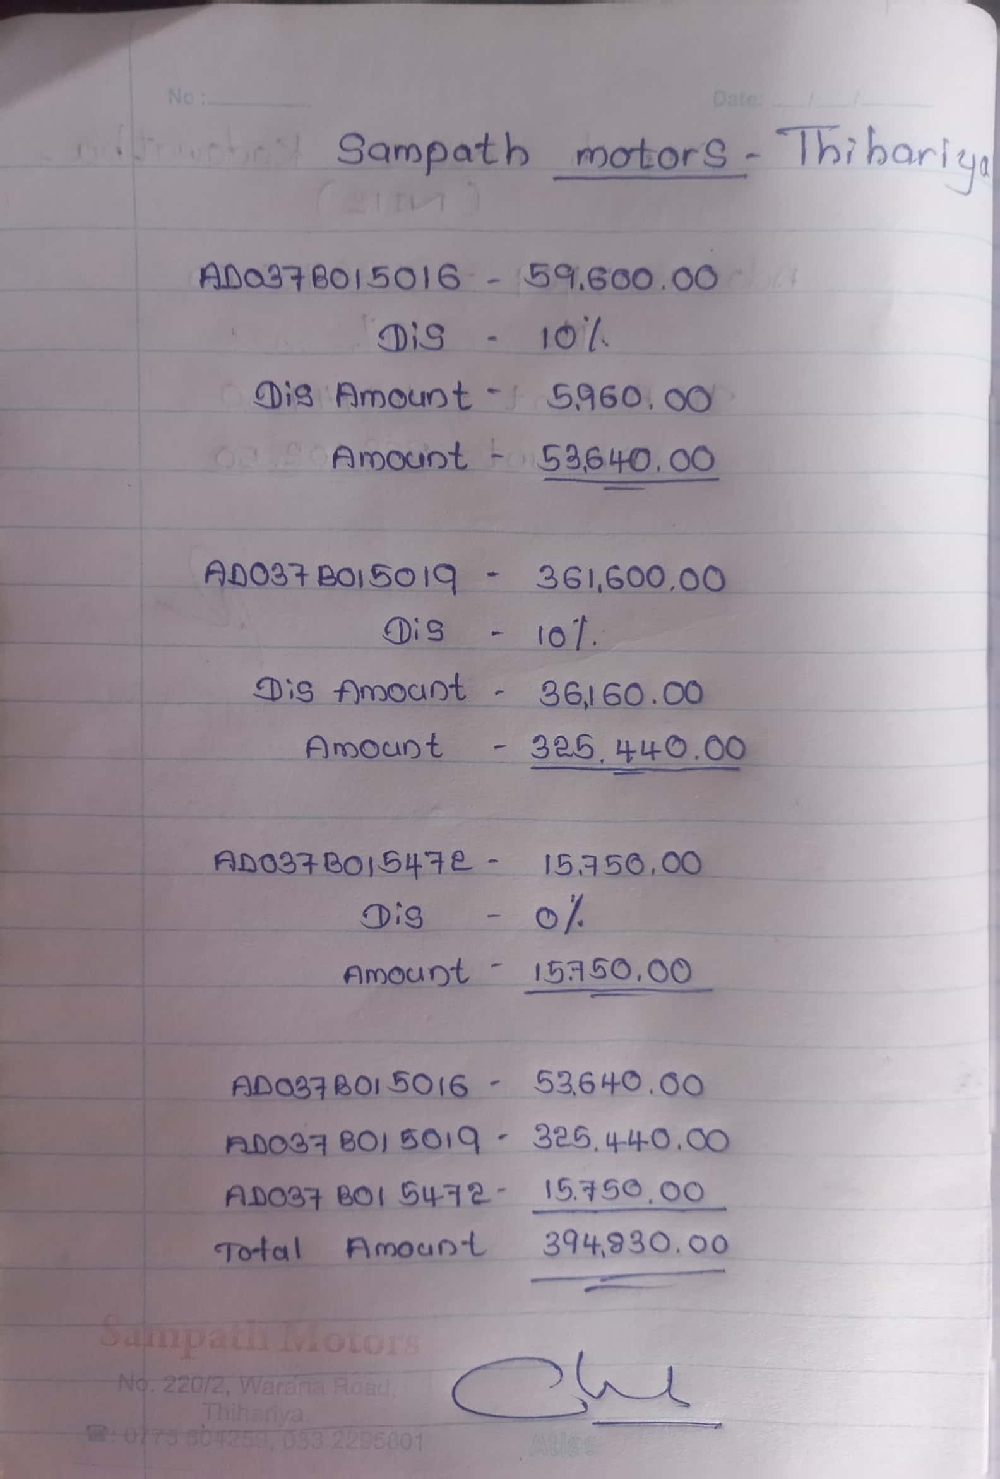 No :
Date: / /
Sampath motors - Thihariya
AD037B015016 - 59,600.00
Dis - 10%
Dis Amount - 5,960.00
Amount - 53,640.00
AD037B015019 - 361,600.00
Dis - 10%.
Dis Amount - 36,160.00
Amount - 325,440.00
AD037B015472 - 15,750.00
Dis - 0%
Amount - 15,750.00
AD037B015016 - 53,640.00
AD037B015019 - 325,440.00
AD037B015472 - 15,750.00
Total Amount 394,830.00
Sampath Motors
No. 220/2, Warana Road,
Thihariya.
033 2295001
Atlas